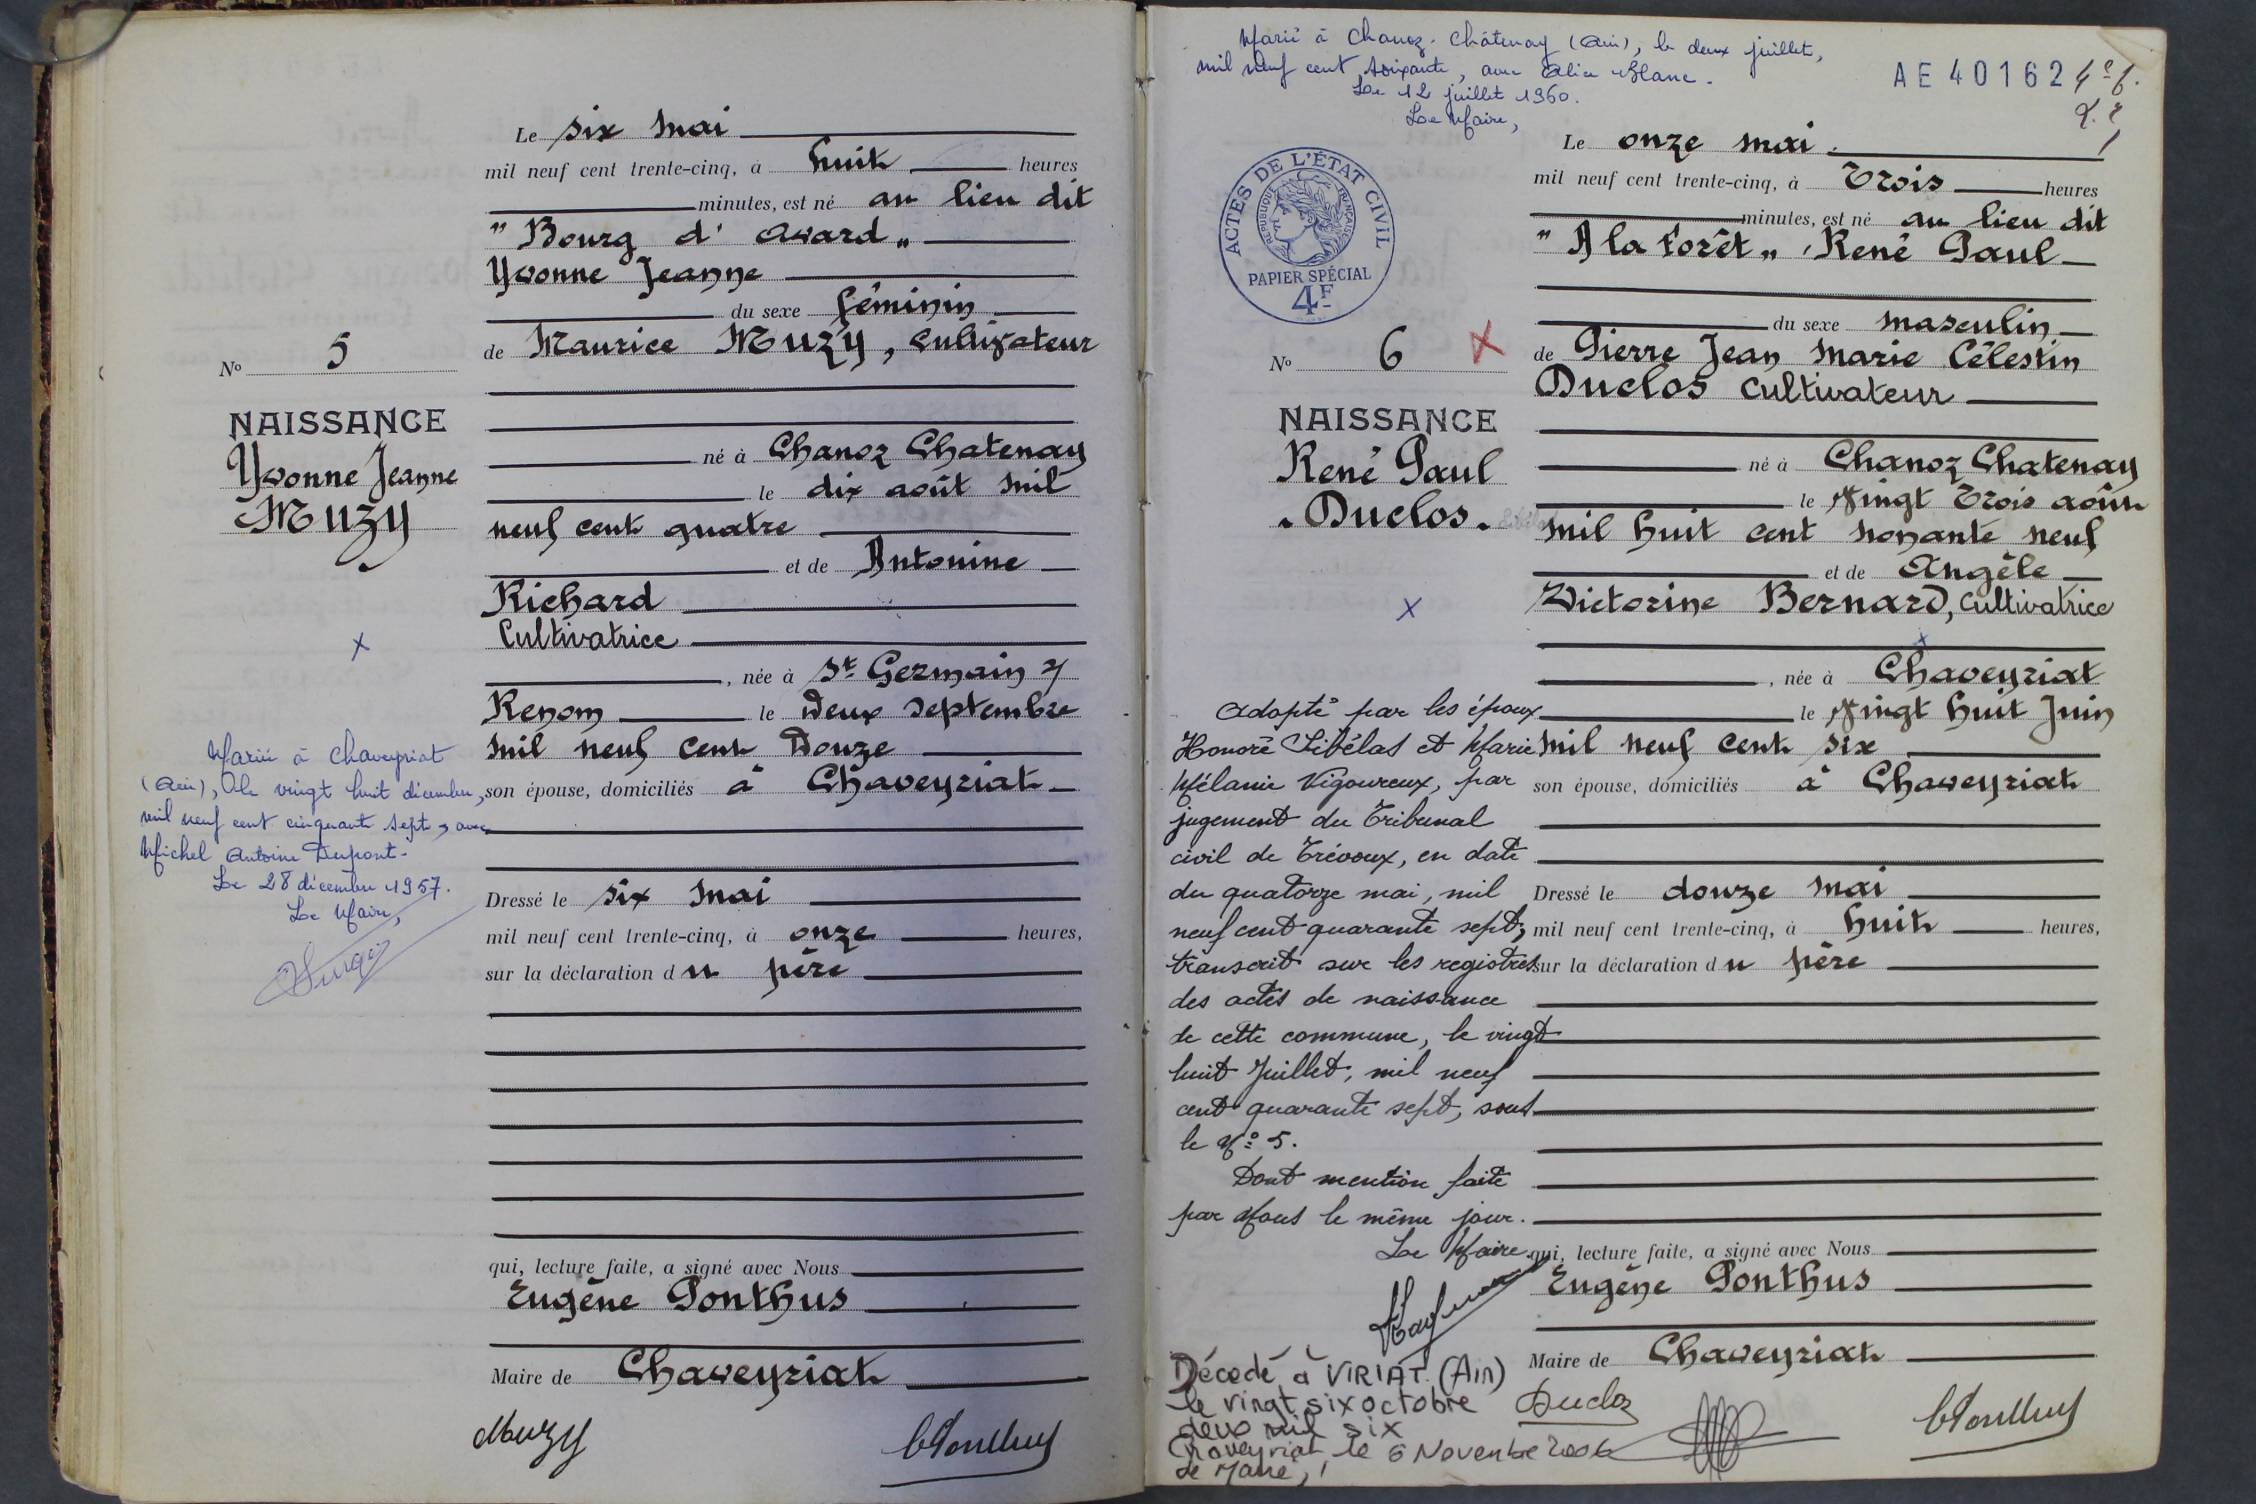 Le six mai
mil neuf cent trente-cinq, à huit heures
minutes, est né au lieu dit
" Bourg d' avard "
Yvonne Jeanne
du sexe féminin
de Maurice Muzy, cultivateur
né à Chanoz Chatenay
le dix août mil
neuf cent quatre
et de Antonine
Richard
Cultivatrice
, née à St Germain
Renom le Deux Septembre
mil neuf cent Douze
son épouse, domiciliés à Chaveyriat
Dressé le six mai
mil neuf cent trente-cinq, à onze heures,
sur la déclaration du père
qui, lecture faite, a signé avec Nous
Eugène Ponthus
Maire de Chaveyriat
Muzy
No 5
NAISSANCE
Yvonne Jeanne
Muzy
Marié à Chaveyriat
(Ain), le vingt huit décembre,
mil neuf cent cinquante sept, avec
Michel Antoine Dupont.
Le 28 décembre 1957.
Le Maire,
Marié à Chanoz-Châtenay (Ain), le deux juillet,
mil neuf cent soixante, avec Alice Blanc.
Le 12 juillet 1960.
Le Maire,
AE 40162
ACTES DE L'ÉTAT CIVIL
RÉPUBLIQUE FRANÇAISE
PAPIER SPÉCIAL
4F
No 6
NAISSANCE
René Paul
Duclos.
Adopté par les époux
Honoré Sibélas et Marie
Mélanie Vigoureux, par
jugement du Tribunal
civil de Trévoux, en date
du quatorze mai, mil
neuf cent quarante sept,
transcrit sur les registres
des actes de naissance
de cette commune, le vingt
huit Juillet, mil neuf
cent quarante sept, sous
le No 5.
Dont mention faite
par Nous le même jour.
Le Maire
Décédé à VIRIAT (Ain)
le vingt six octobre
deux mil six
Chaveyriat, le 6 Novembre 2006
Le onze mai
mil neuf cent trente-cinq, à Trois heures
minutes, est né au lieu dit
" A la Forêt ", René Paul
du sexe masculin
de Pierre Jean Marie Célestin
Duclos cultivateur
né à Chanoz Chatenay
le Vingt Trois août
mil huit cent nonante neuf
et de Angèle
Victorine Bernard, Cultivatrice
, née à Chaveyriat
le Vingt huit Juin
mil neuf cent six
son épouse, domiciliés à Chaveyriat
Dressé le douze mai
mil neuf cent trente-cinq, à huit heures,
sur la déclaration du père
qui, lecture faite, a signé avec Nous
Eugène Ponthus
Maire de Chaveyriat